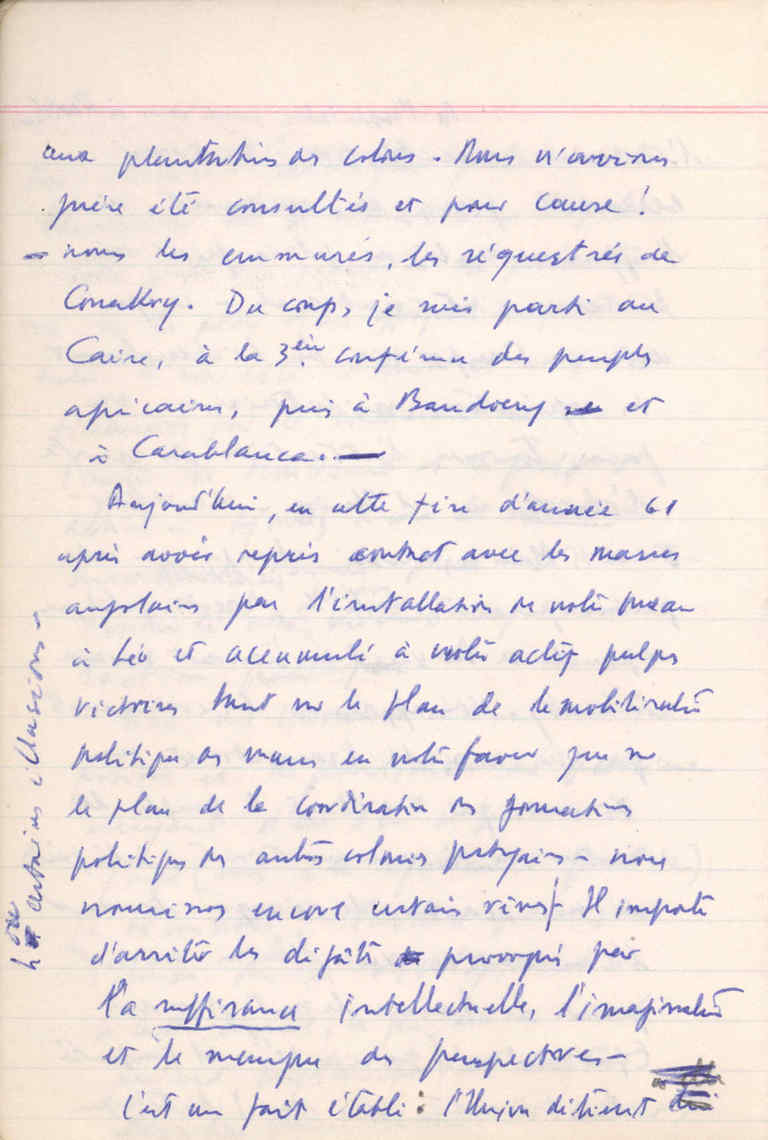 aux plantations des colons. Nous n'avions
guère été consultés et pour cause !
- nous les emmurés, les séquestrés de
Conakry. Du coup, je suis parti au
Caire, à la 3è conférence des peuples
africains, puis à Bandoeng et
à Casablanca. —
Aujourd'hui, en cette fin d'année 61
après avoir repris contact avec les masses
angolaises par l'installation de notre bureau
à Léo et accumulé à notre actif quelques
victoires tant sur le plan de la mobilisation
politique des masses en notre faveur que sur
le plan de la coordination des formations
politiques des autres colonies portugaises - nous
nourrissons encore certains rêves
ou certaines illusions -
Il importe
d'arrêter les dégâts provoqués par
la suffisance intellectuelle, l'imagination
et le manque de perspectives -
C'est un fait établi : l'Union détient